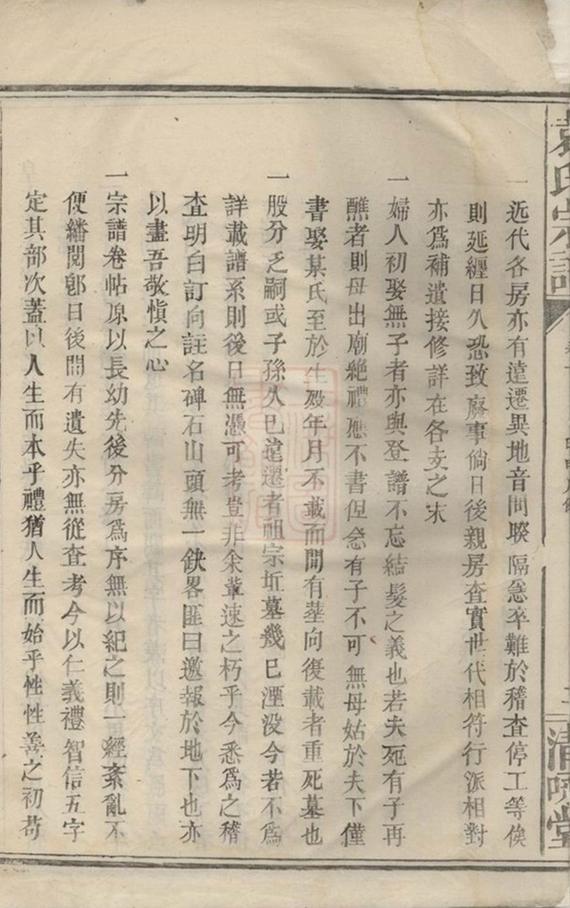 袁氏宗譜
清
堂
一近代各房亦有遠遷異地音問睽隔急卒難於稽查停工等俟
則延纏日久恐致廢事倘日後親房查實世代相符行派相對
亦爲補遺接修詳在各支之末
一婦人初娶無子者亦與登譜不忘結髮之義也若夫死有子再
醮者則母出廟絕禮應不書但念有子不可無母姑於夫下僅
書娶某氏至於生歿年月不載而間有塟向復載者重死墓也
一股分乏嗣或子孫久已遠遷者祖宗坵墓幾已湮没今若不爲
詳載譜系則後日無憑可考豈非余輩速之朽乎今悉爲之稽
查明白訂向註名碑石山頭無一缺畧匪曰邀報於地下也亦
以盡吾敬慎之心
一宗譜卷帖原以長幼先後分房爲序無以紀之則一經紊亂不
便繙閱卽日後間有遺失亦無從查考今以仁義禮智信五字
定其部次蓋以人生而本乎禮猶人生而始乎性性善之初苟